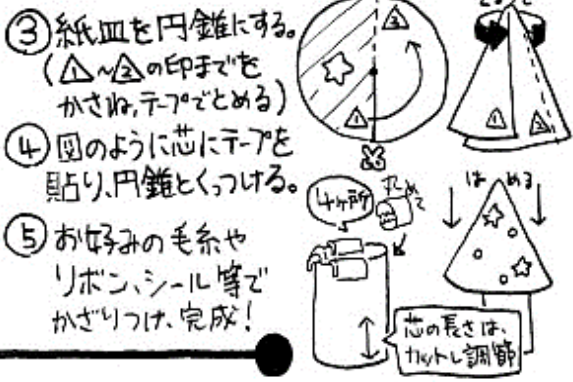 ③紙皿を円錐にする。
(△1～△2の印までを
かさね、テープでとめる)
④図のように芯にテープを
貼り、円錐とくっつける。
⑤お好みの毛糸や
リボン、シール等で
かざりつけ、完成!
2
1
1
2
4ヶ所
丸めて
はめる
芯の長さは、
カットし調節